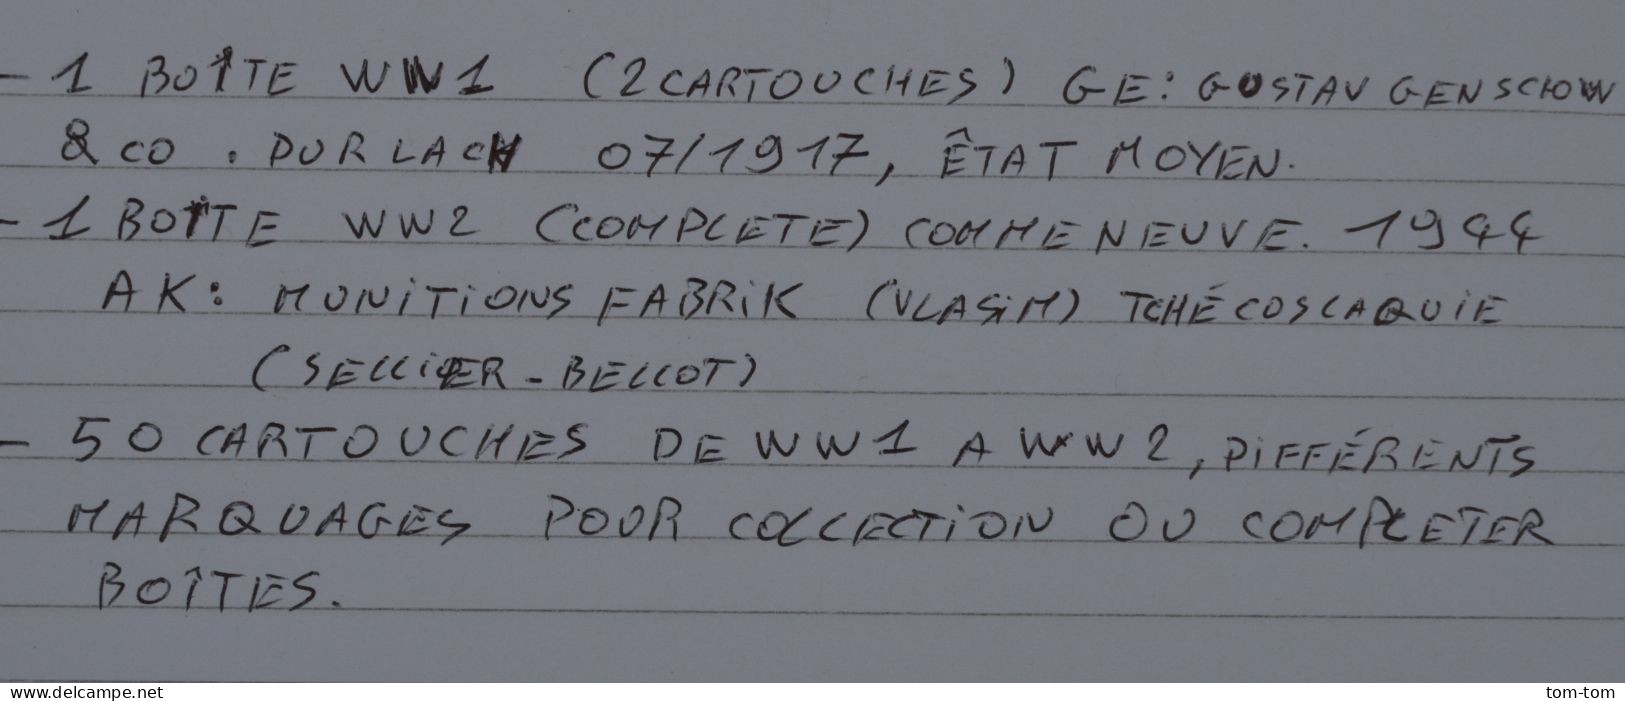 - 1 BOÎTE WW1 (2 CARTOUCHES) GE: GUSTAV GENSCHOW
& CO. DURLACH 07/1917, ÊTAT MOYEN.
- 1 BOÎTE WW2 (COMPLETE) COMME NEUVE. 1944
AK: MUNITIONS FABRIK (VLASIM) TCHÉCOSLAQUIE
(SELLIER - BELLOT)
- 50 CARTOUCHES DE WW1 A WW2, DIFFÉRENTS
MARQUAGES POUR COLLECTION OU COMPLETER
BOÎTES.
www.delcampe.net
tom-tom